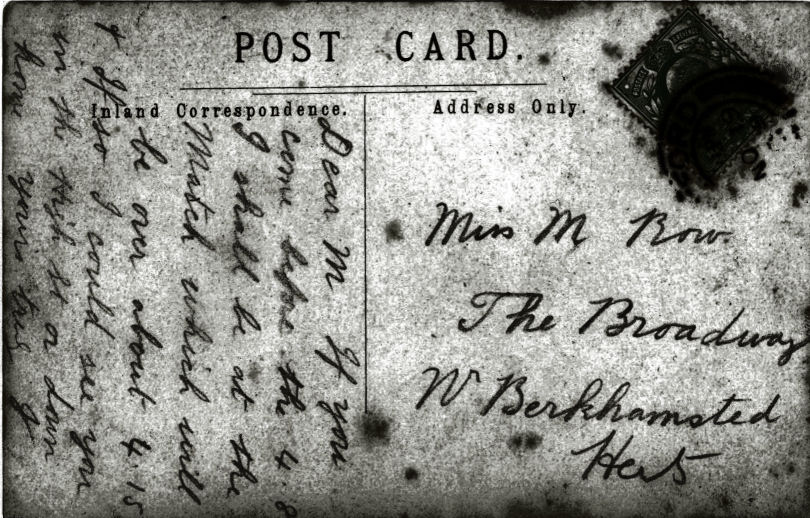 POST CARD.
Inland Correspondence.
Address Only.
Dear M If you
come before the 4.8
I shall be at the
Match which will
be over about 4.15
& if so I could see you
in the High St or down
home yours truly
Miss M Row.
The Broadway
Nr Berkhamsted
Herts